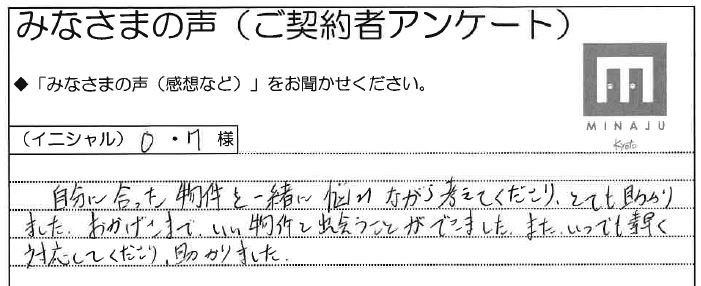 みなさまの声（ご契約者アンケート）
◆「みなさまの声（感想など）」をお聞かせください。
MINAJU
Kyoto
（イニシャル） O・M 様
自分に合った物件を一緒に悩みながら考えてくださり、とても助かり
ました。おかげさまで、いい物件と出会うことができました。また、いつでも素早く
対応してくださり、助かりました。